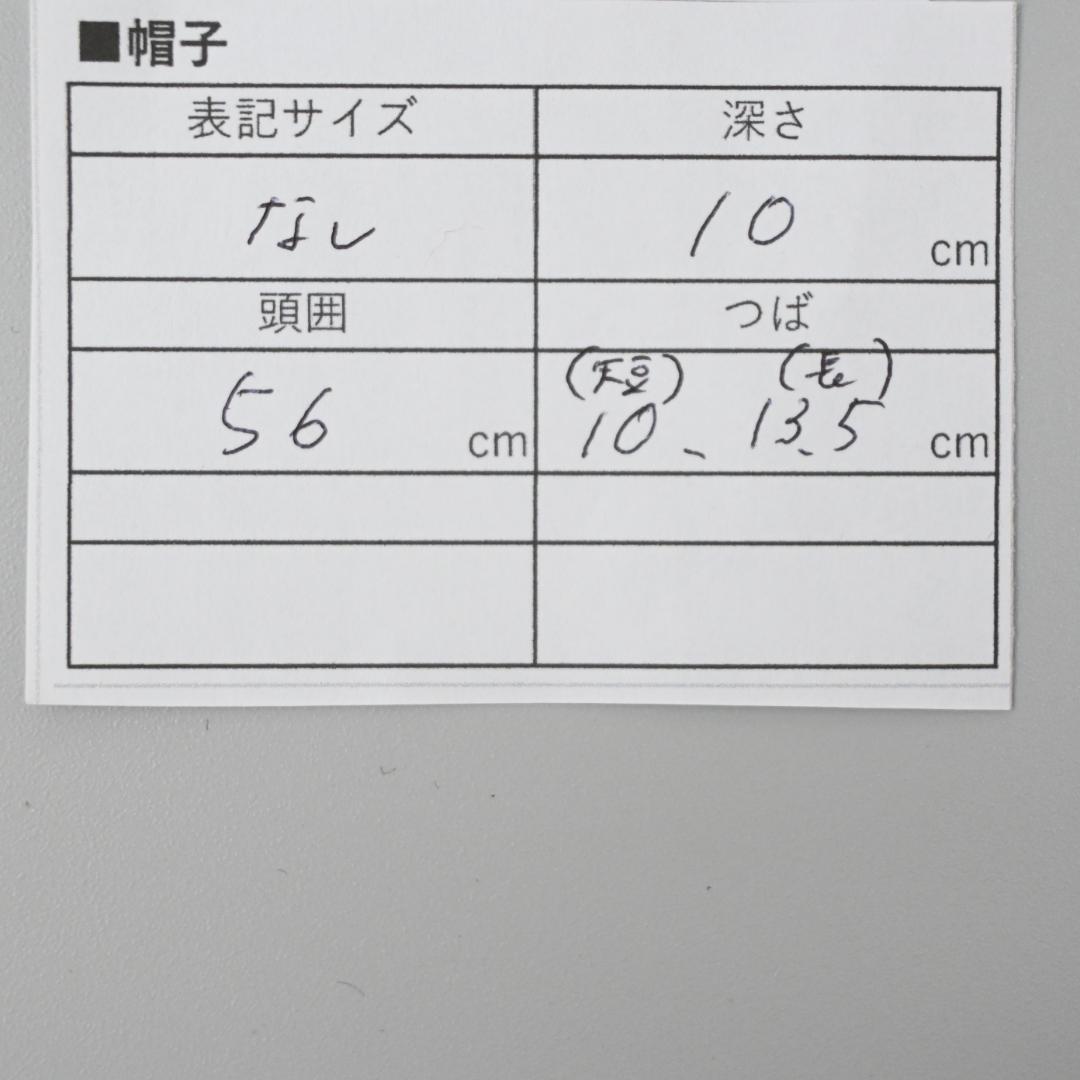 ■帽子
表記サイズ 深さ
なし 10 cm
頭囲 つば
(短) (長)
56 cm 10、13.5 cm